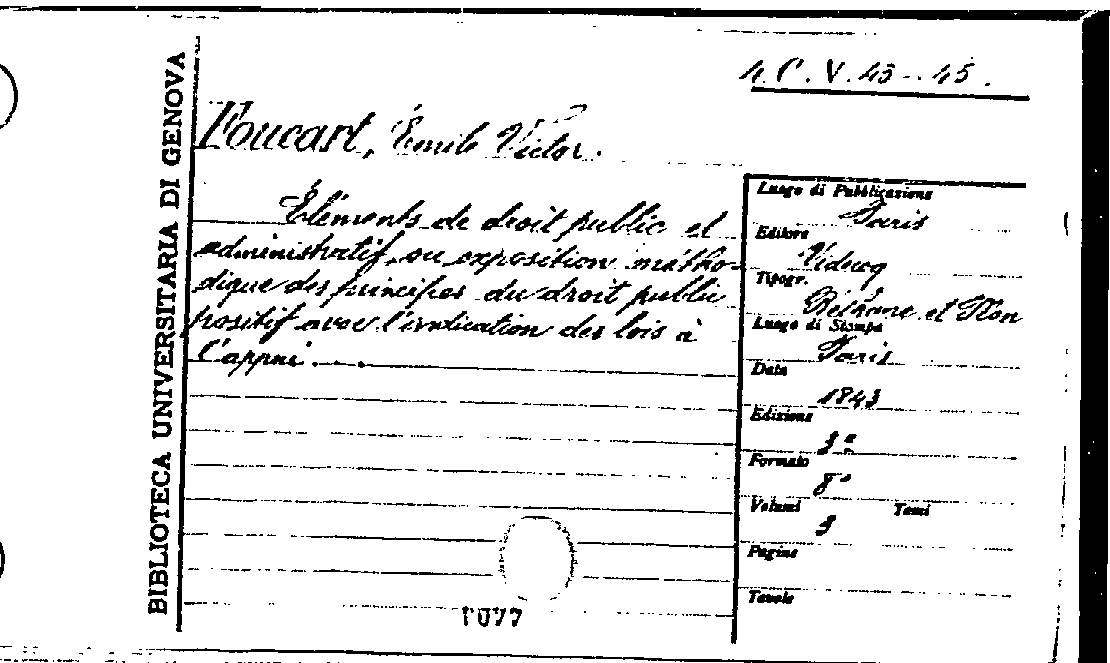 4. C. V. 43-45.
BIBLIOTECA UNIVERSITARIA DI GENOVA
Foucart, Émile Victor.
Éléments de droit public et
administratif, ou exposition métho-
dique des principes du droit public
positif avec l'indication des lois à
l'appui...
Luogo di Pubblicazione
Paris
Editore
Videcoq
Tipogr.
Béthune et Plon
Luogo di Stampa
Paris
Data
1843
Edizione
3ª
Formato
8°
Volumi Tomi
3
Pagine
Tavole